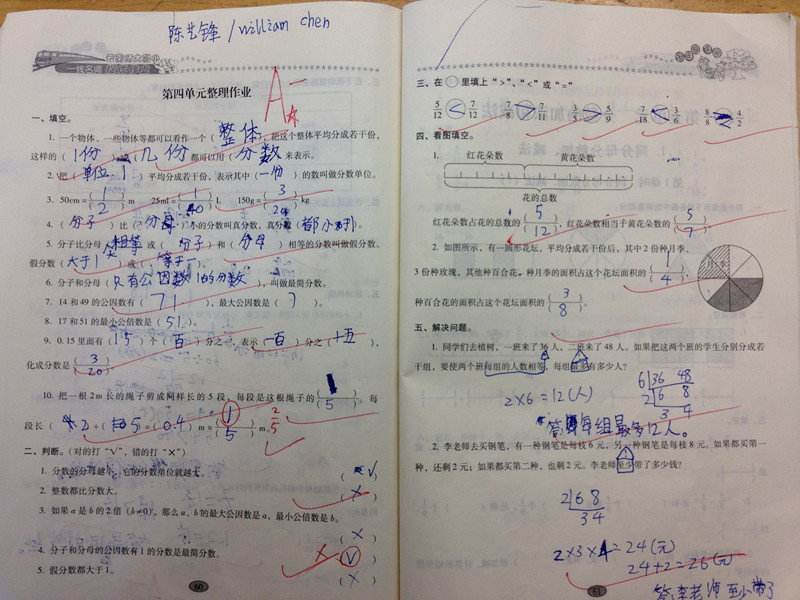 陈艺锋/william chen
A-
第四单元整理作业
一、填空。
1. 一个物体、一些物体等都可以看作一个(整体),把这个整体平均分成若干份,
这样的(1份)或(几份)都可以用(分数)来表示。
2. 把(单位1)平均分成若干份,表示其中(一份)的数叫做分数单位。
3. 50cm=(1/2)m 25ml=(1/40)L 150g=(3/20)kg
4. (分子)比(分母)小的分数叫真分数,真分数(都小于1)。
5. 分子比分母(相等)或(分子)和(分母)相等的分数叫做假分数。
假分数(大于1)或(等于一)。
6. 分子和分母(只有公因数1的分数),叫做最简分数。
7. 14和49的公因数有(7 1),最大公因数是(7)。
8. 17和51的最小公倍数是(51)。
9. 0.15里面有(15)个(百)分之一,表示(一百)分之(十五),
化成分数是(3/20)
10. 把一根2m长的绳子剪成同样长的5段,每段是这根绳子的(1/5)。每
段长(2÷5=(0.4)m=(1/5)m。2/5
二、判断。(对的打"√",错的打"×")
1. 分数的分母越小,它的分数单位就越大。(√)
2. 整数都比分数大。(×)
3. 如果a是b的2倍(b≠0),那么a、b的最大公因数是a,最小公倍数是b。
(×)
4. 分子和分母的公因数有1的分数是最简分数。(√)
5. 假分数都大于1。(×)
60
三、在○里填上">"、"<"或"="
5/12<7/12 7/8>7/11 3/3>3/5 7/18 3/6 8/8 4/2
四、看图填空。
1. 红花朵数 黄花朵数
花的总数
红花朵数占花的总数的(5/12),红花朵数相当于黄花朵数的(5/7)
2. 如图所示,有一圆形花坛,平均分成若干份后,其中2份种月季,
3份种玫瑰,其他种百合花。种月季的面积占这个花坛面积的(1/4),
种百合花的面积占这个花坛面积的(3/8)。
月季
五、解决问题。
1. 同学们去植树,一班来了36人,二班来了48人。如果把这两个班的学生分别分成若
干组,要使两个班每组的人数相等,每组最多有多少人?
6 36 48
2 6 8
3 4
2×6=12(人)
答:每组最多12人。
2. 李老师去买钢笔,有一种钢笔是每枝6元,另一种钢笔是每枝8元。如果都买第一
种,还剩2元;如果都买第二种,也剩2元。李老师至少带了多少钱?
2 6 8
3 4
2×3×4=24(元)
24+2=26(元)
答:李老师至少带了
61